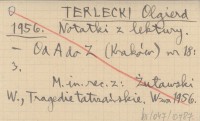 TERLECKI Olgierd
1956. Notatki z lektury.
– Od A do Z (Kraków) nr 18:
3.
M.in. rec. z: Żuławski
W., Tragedie tatrzańskie. Wwa 1956.